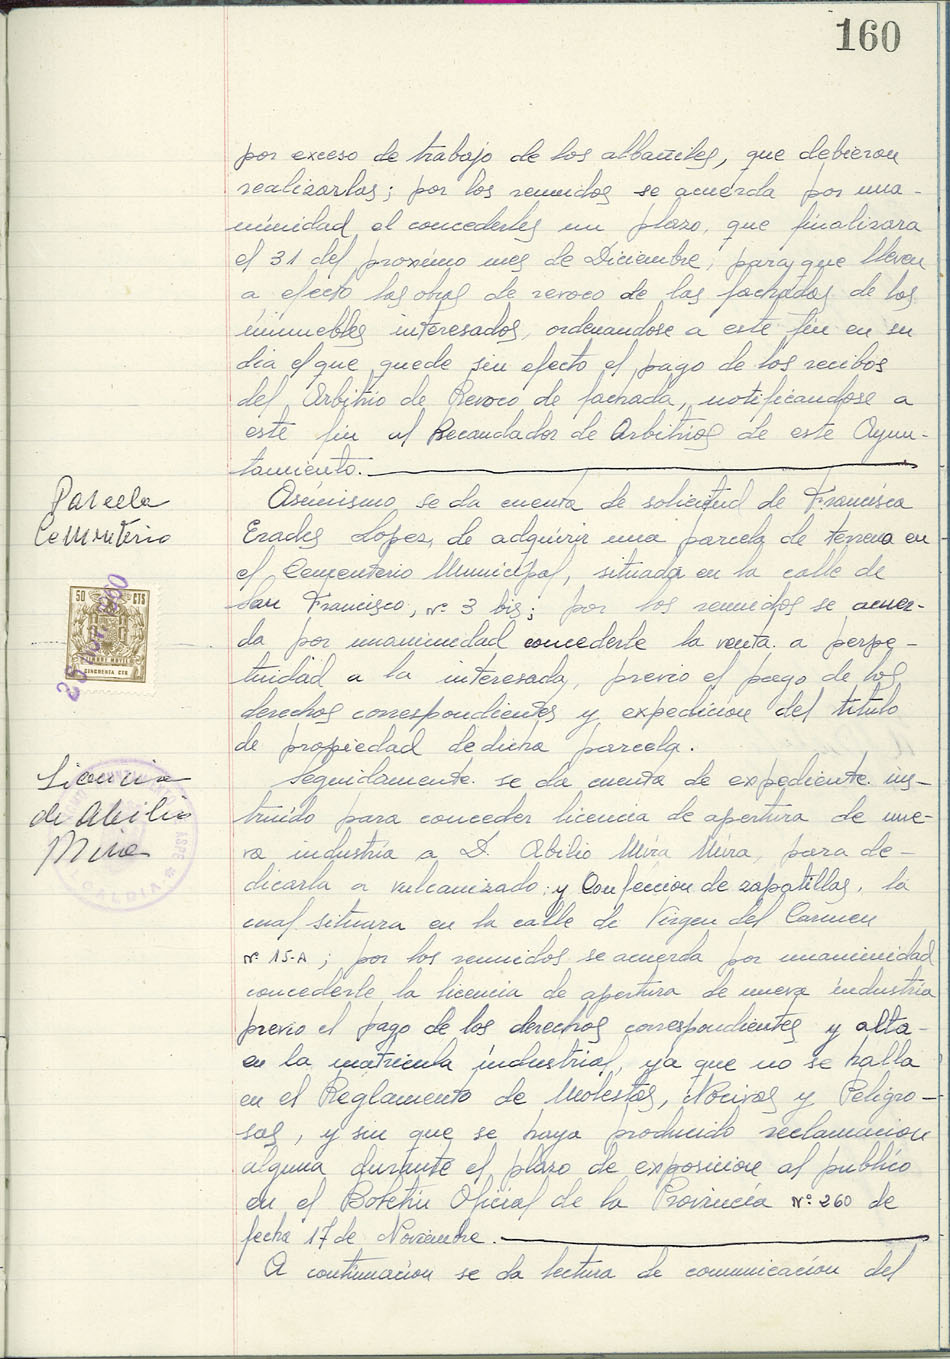 160
por exceso de trabajo de los albañiles, que debieron
realizarlas; por los reunidos se acuerda por una-
nimidad el concederles un plazo, que finalizara
el 31 del proximo mes de Diciembre, para que lleven
a efecto las obras de revoco de las fachadas de los
inmuebles interesados, ordenandose a este fin en su
dia el que quede sin efecto el pago de los recibos
del Arbitrio de Revoco de fachada, notificandose a
este fin al Recaudador de Arbitrios de este Ayun-
tamiento.
Parcela
Cementerio
Asimismo se da cuenta de solicitud de Francisca
Erades Lopez, de adquirir una parcela de terreno en
el Cementerio Municipal, situada en la calle de
San Francisco, nº 3 bis; por los reunidos se acuer-
da por unanimidad concederle la venta a perpe-
tuidad a la interesada, previo el pago de los
derechos correspondientes y expedicion del titulo
de propiedad de dicha parcela.
50 CTS
CINCUENTA CTS
Licencia
de Abilio
Mira
ASPE
ALCALDIA
Seguidamente se da cuenta de expediente ins-
truido para conceder licencia de apertura de nue-
va industria a D. Abilio Mira Mira, para de-
dicarla a vulcanizado y Confeccion de zapatillas, la
cual situara en la calle de Virgen del Carmen
nº 15-A; por los reunidos se acuerda por unanimidad
concederle la licencia de apertura de nueva industria
previo el pago de los derechos correspondientes y alta-
en la matricula industrial, ya que no se halla
en el Reglamento de Molestas, Nocivas y Peligro-
sas, y sin que se haya producido reclamacion
alguna durante el plazo de exposicion al publico
en el Boletin Oficial de la Provincia Nº 260 de
fecha 17 de Noviembre.
A continuacion se da lectura de comunicacion del